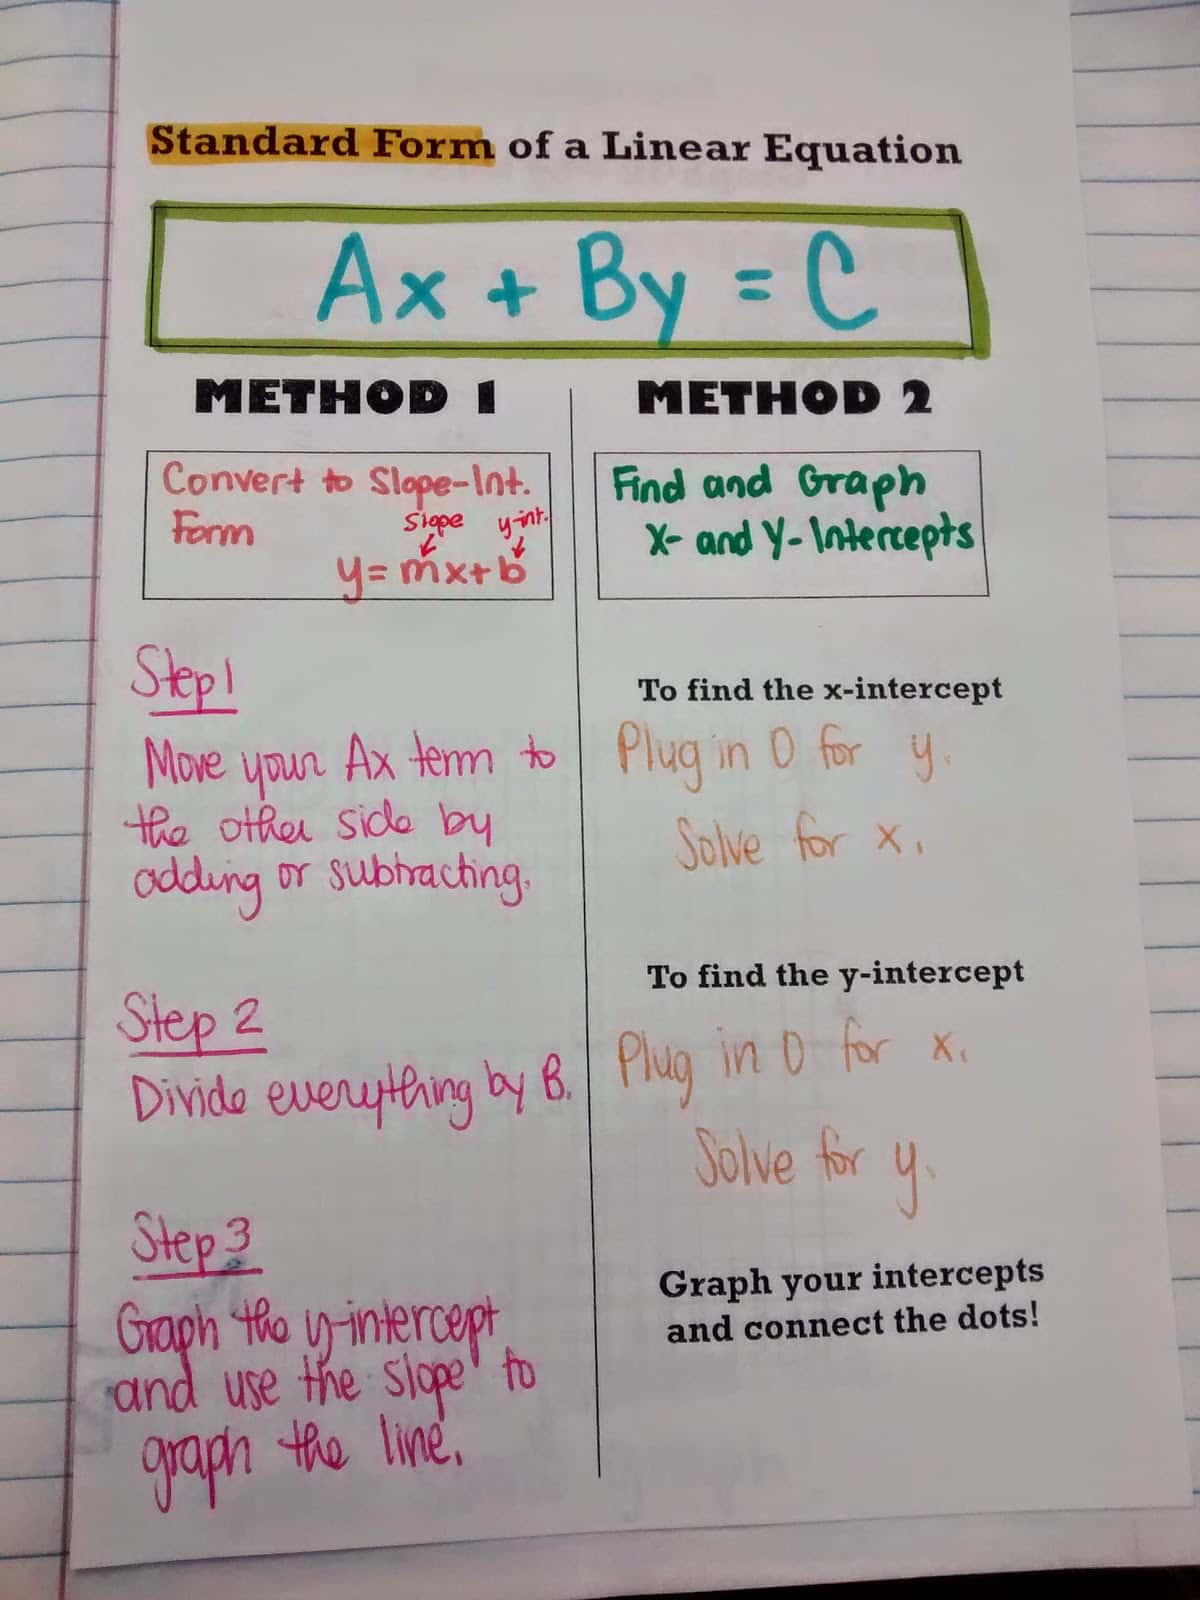 Standard Form of a Linear Equation
Ax + By = C
METHOD 1
Convert to Slope-Int.
Form
slope y-int.
y = mx + b
Step 1
Move your Ax term to
the other side by
adding or subtracting.
Step 2
Divide everything by B.
Step 3
Graph the y-intercept
and use the slope to
graph the line.
METHOD 2
Find and Graph
X- and Y-Intercepts
To find the x-intercept
Plug in 0 for y.
Solve for x.
To find the y-intercept
Plug in 0 for x.
Solve for y.
Graph your intercepts
and connect the dots!